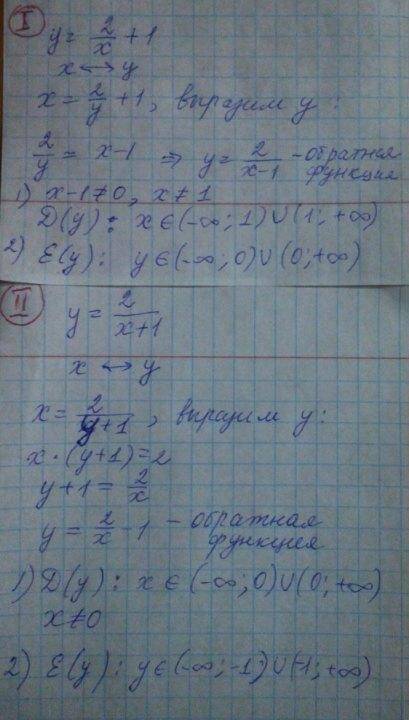 I
y = 2/x + 1
x ↔ y
x = 2/y + 1, выразим y:
2/y = x-1 ⇒ y = 2/(x-1) - обратная функция
1) x-1≠0, x≠1
D(y): x∈(-∞; 1)∪(1; +∞)
2) E(y): y∈(-∞; 0)∪(0; +∞)
II
y = 2/(x+1)
x ↔ y
x = 2/(y+1), выразим y:
x·(y+1)=2
y+1 = 2/x
y = 2/x - 1 - обратная функция
1) D(y): x∈(-∞; 0)∪(0; +∞)
x≠0
2) E(y): y∈(-∞; -1)∪(-1; +∞)